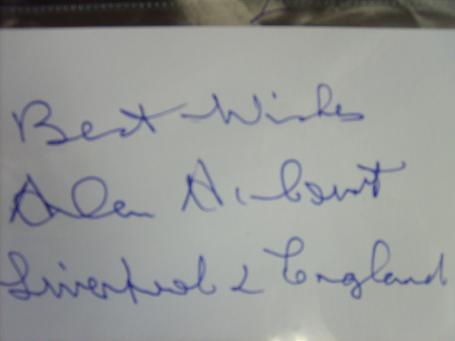 Best Wishes
Alan A'Court
Liverpool & England